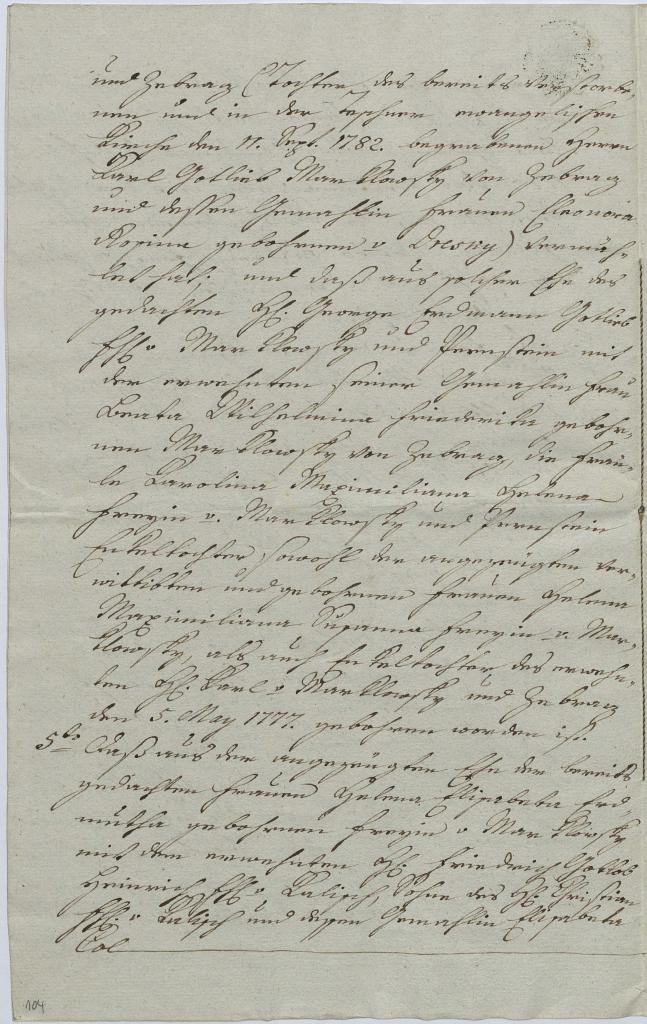 und Zebrag (Tochter des bereits verstorbe„
nen und in der Teschner evangelischen
Kirche den 11. Sept. 1782. begrabenen Herrn
Karl Gotlieb Marklowsky von Zebrag
und dessen Gemahlin Frauen Eleonora
Rosina gebohrnen v Dresky) vermäh„
let hat; und daß aus solcher Ehe des
gedachten H. George Erdmann Gotlieb
Marklowsky und Pernstein mit
der erwehnten seiner Gemahlin Frau
Beata Wilhelmina Friederika gebohr„
nen Marklowsky von Zebrag, die Fräu„
le Karolina Maximiliana Helena
Freyin v. Marklowsky und Pernstein
Enkeltochter sowohl der angezeugten ver„
wittibten und gebohrnen Frauen Helena
Maximiliana Susanna Freyin v. Mar„
klowsky, als auch Enkeltochter des erwehn„
ten H. Karl v Marklowsky und Zebrag
den 5. May 1777. gebohren worden ist.
5to Daß aus der angezeugten Ehe der bereits
gedachten Frauen Helena Elisabeta Erd„
mutha gebohrnen Freyin v Marklowsky
mit dem erwehnten H. Friedrich Gotlob
Heinrich v Kalisch, Sohne des H. Christian
v Kalisch und dessen Gemahlin Elisabeta
Col
104